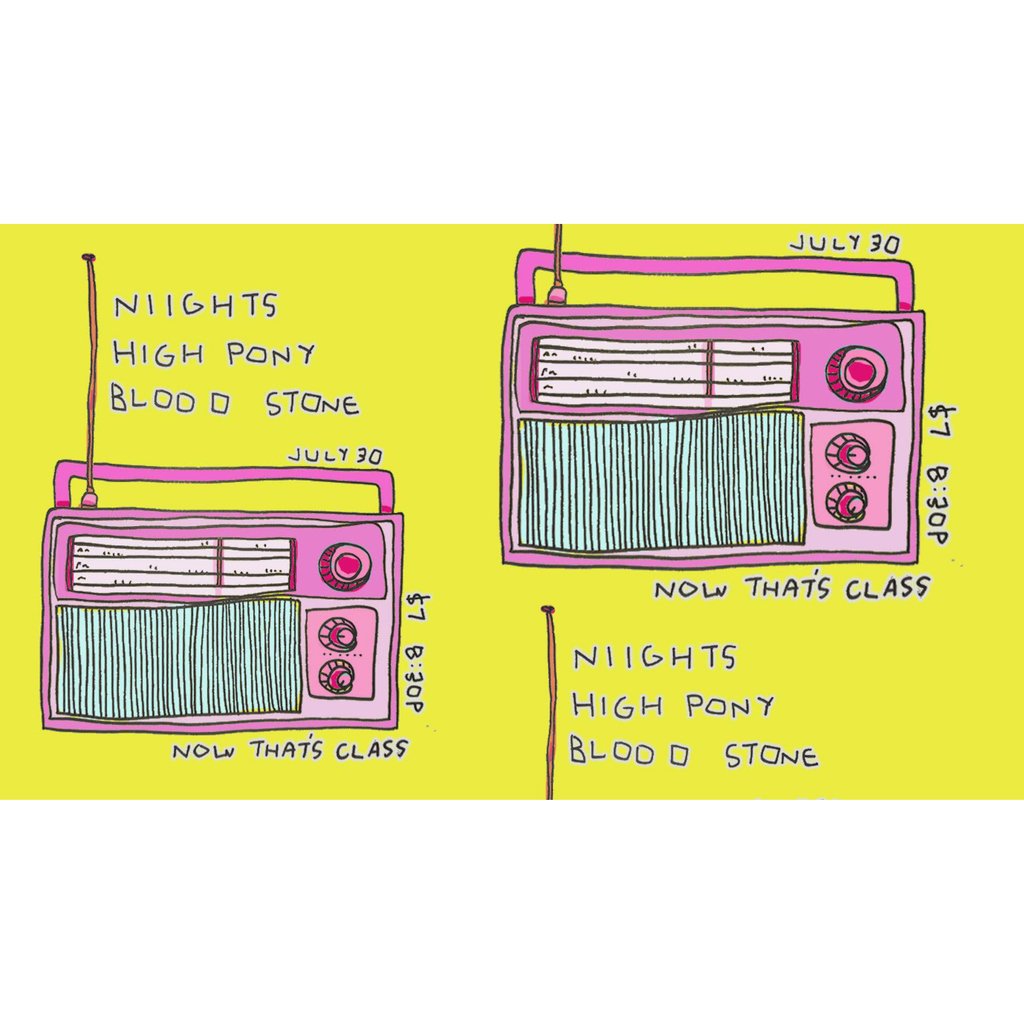 NIIGHTS
HIGH PONY
BLOOD STONE
JULY 30
$7 8:30P
NOW THAT'S CLASS
JULY 30
$7 8:30P
NOW THAT'S CLASS
NIIGHTS
HIGH PONY
BLOOD STONE